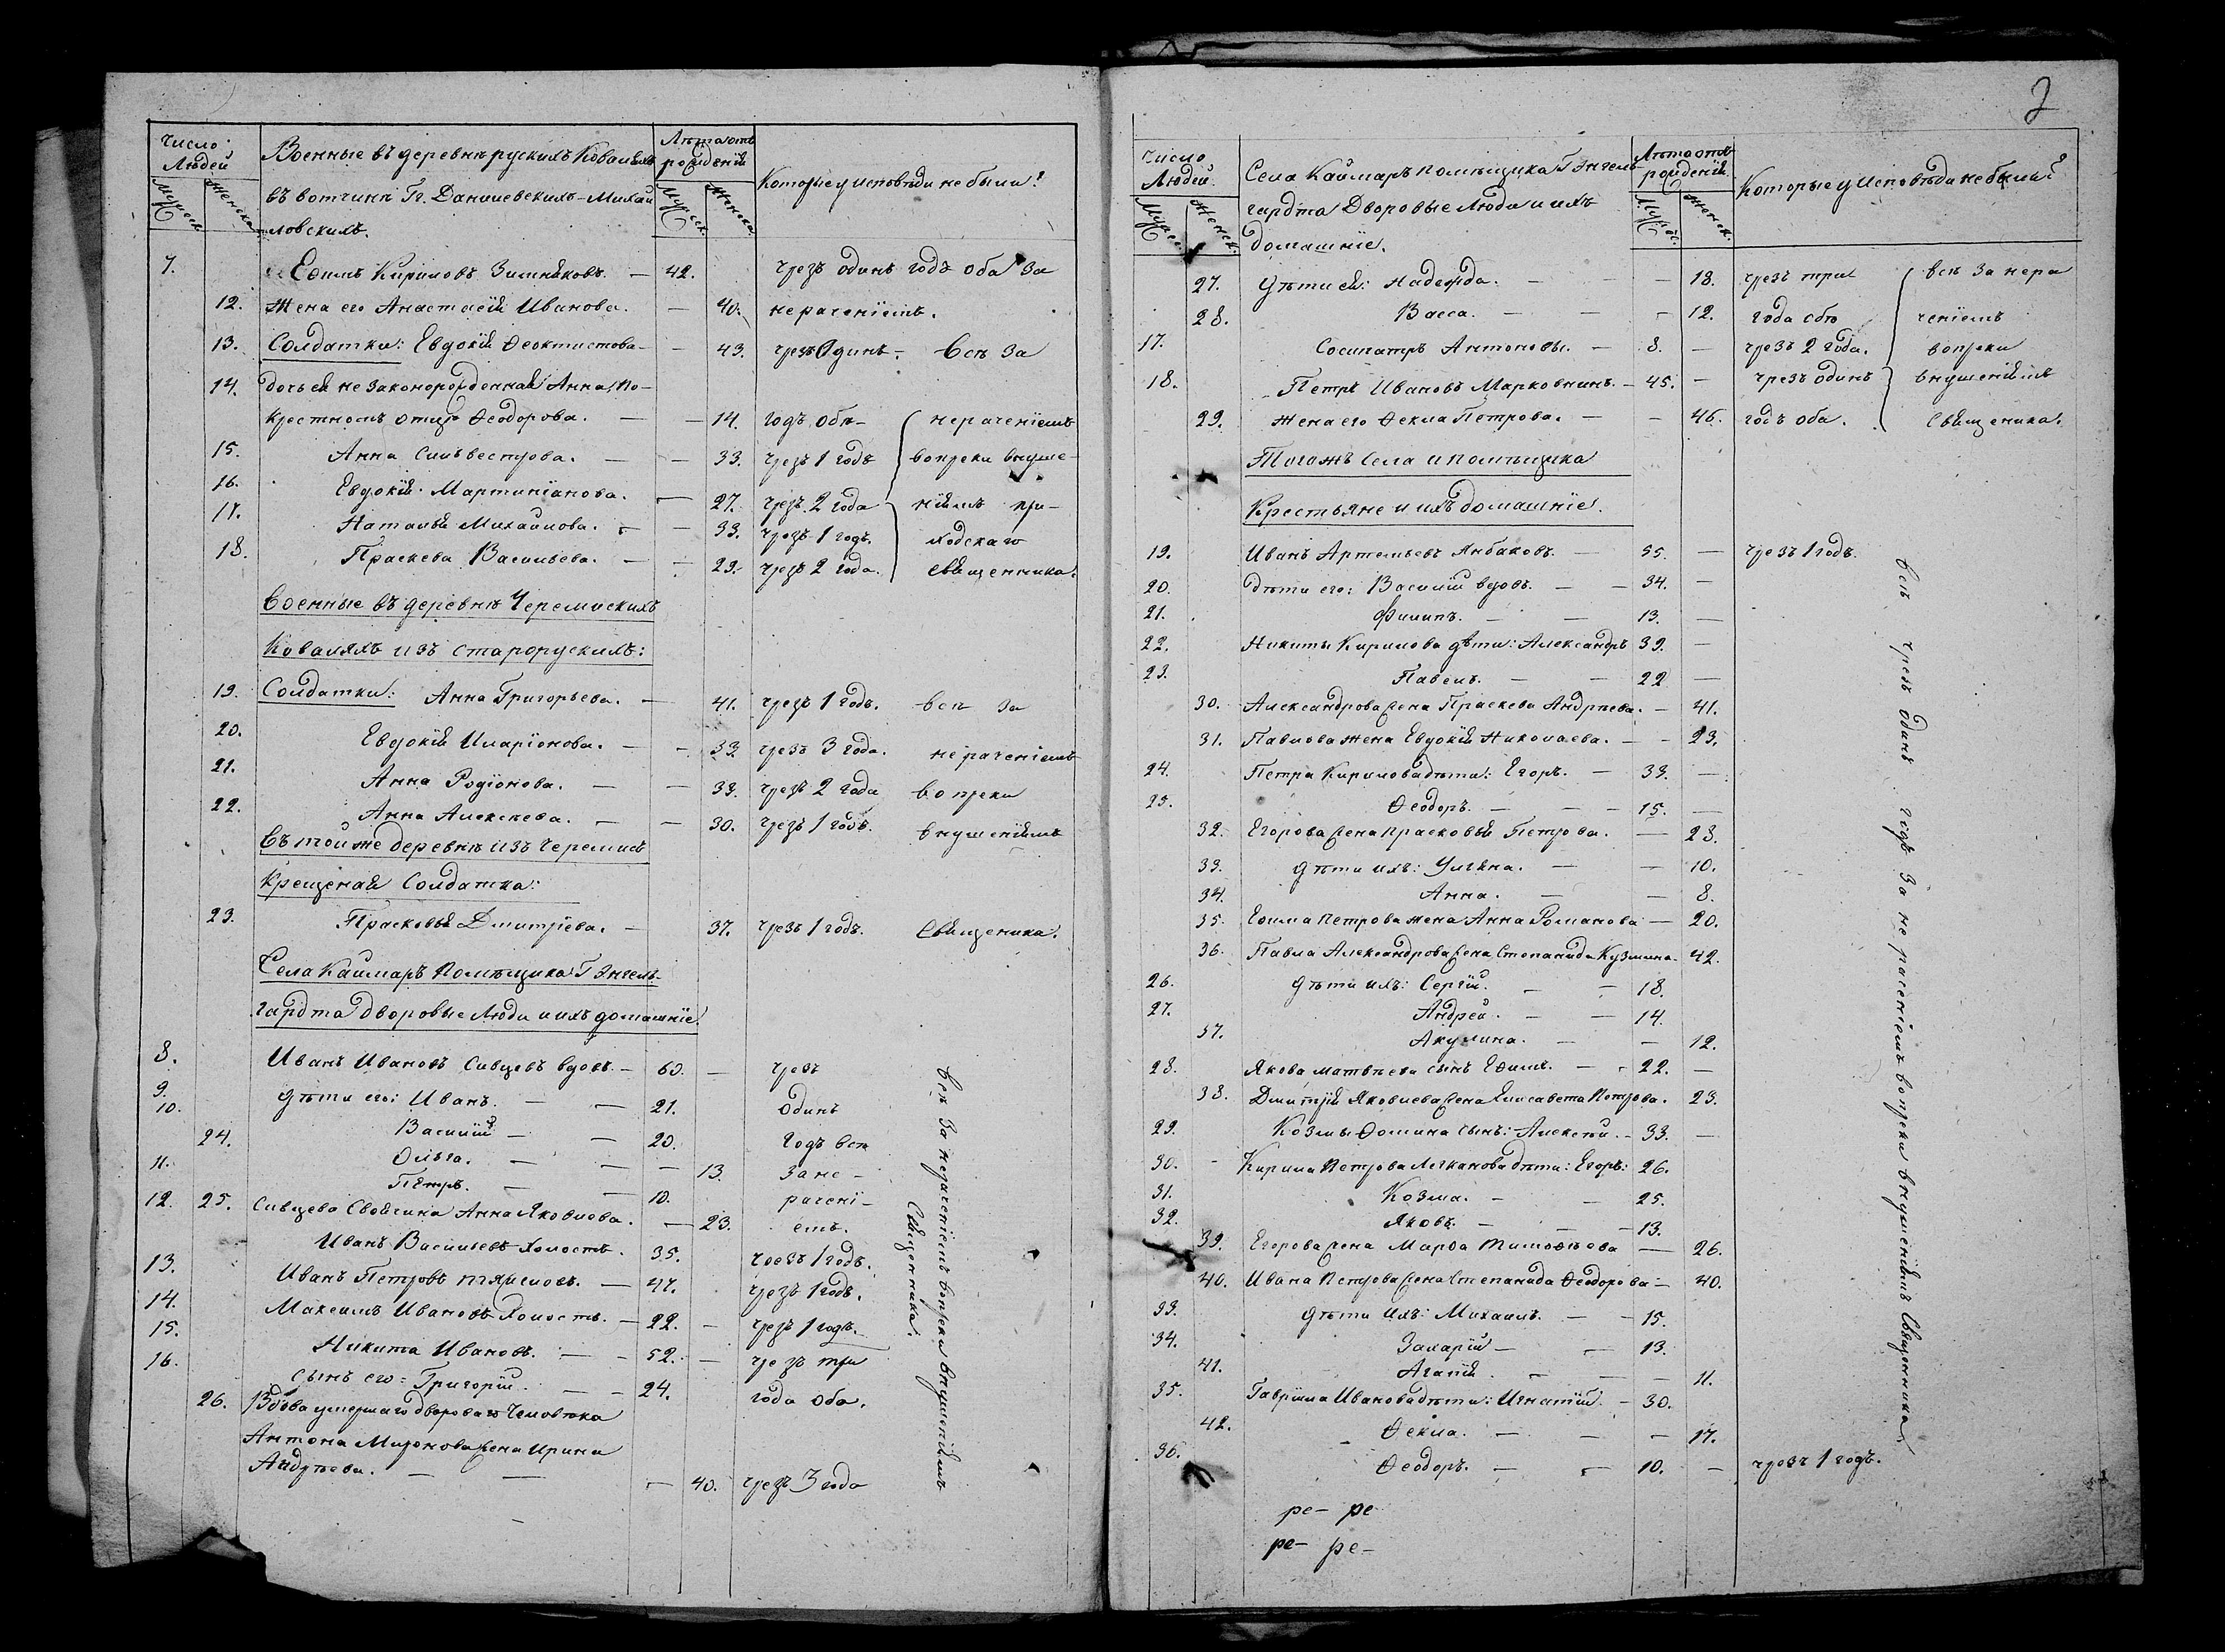 Число Людей
Мужеск. Женска.
Военные въ деревнѣ рускихъ Ковалихъ
въ вотчинѣ Гг. Данилевскихъ-Михай
ловскихъ.
Лѣта отъ рожденія
Мужеск. Женска.
Которые у исповѣди не были?
7. Еѳимъ Кириловъ Зимняковъ. — 42. чрезъ одинъ годъ оба за
12. Жена его Анастасія Иванова. — 40. нераченіемъ.
13. Солдатки: Евдокія Ѳеоктистова — 43. чрезъ Одинъ — всѣ за
14. дочь ея не законорожденная Анна, по
крестномъ отцѣ Ѳеодорова. — 14. годъ обѣ — нераченіемъ
15. Анна Сильвестрова. — 33. чрезъ 1 годъ вопреки внуше-
16. Евдокія Мартиніанова. — 27. чрезъ 2 года ніямъ при-
17. Наталья Михайлова. — 33. чрезъ 1 годъ. ходскаго
18. Праскева Васильева. — 29. чрезъ 2 года. священника.
Военные въ деревнѣ Черемискихъ
Коваляхъ изъ старорускихъ:
19. Солдатки: Анна Григорьева. — 41. чрезъ 1 годъ. всѣ за
20. Евдокія Иларіонова. — 33. чрезъ 3 года. нераченіемъ
21. Анна Родіонова. — 33. чрезъ 2 года вопреки
22. Анна Алексѣева. — 30. чрезъ 1 годъ. внушеніямъ
Въ той же деревнѣ изъ черемисъ
крещеная Солдатка:
23. Прасковья Дмитріева. — 37. чрезъ 1 годъ. Священика.
Села Каймаръ Помѣщика Г. Энгель-
гардта дворовые Люди и ихъ домашніе.
8. Иванъ Ивановъ Сивцевъ вдовъ. — 60. — чрезъ
9. дѣти его: Иванъ. — 21. одинъ
10. Василій — 20. Годъ всѣ
24. Ольга. — 13. за не-
11. Петръ. — 10. рачені-
12. 25. Сивцева Своячина Анна Яковлева. — 23. емъ.
Иванъ Васильевъ холостъ. 35. чрезъ 1 годъ.
13. Иванъ Петровъ — 47. чрезъ 1 годъ.
14. Максимъ Ивановъ Холостъ. — 22. — чрезъ 1 годъ.
15. Никита Ивановъ. — 52. — чрезъ три
16. сынъ его: Григорій. — 24. года оба.
26. Вдова умершаго двороваго Человѣка
Антона Миронова жена Ирина
Андрѣева. — 40. чрезъ 3 года
всѣ за нераченіемъ вопреки внушеніямъ
Священника.
2
Число Людей.
Мужес. Женск.
Села Каймаръ помѣщика Г. Энгель-
гардта Дворовые Люди и ихъ
домашніе.
Лѣта отъ рожденія
Мужес. Женск.
Которые у Исповѣди не были?
27. Дѣти ея: Надежда. — 18. чрезъ три всѣ за нера
28. Васса. — 12. года обѣ ченіемъ
17. Сосипатръ Антоновы. — 8. — чрезъ 2 года. вопреки
18. Петръ Ивановъ Марковнинъ. — 45. — чрезъ одинъ внушеніямъ
29. Жена его Ѳекла Петрова. — 46. годъ оба. Священика.
Тогожъ Села и помѣщика
Крестьяне и ихъ домашніе.
19. Иванъ Артемьевъ Янбаковъ. — 55. — чрезъ 1 годъ.
20. дѣти его: Василій вдовъ. — 34. —
21. Филипъ. — 13. —
22. Никиты Кирилова дѣти: Александръ 39. —
23. Павелъ. — 22 —
30. Александрова жена Праскева Андрѣева. — 41.
31. Павлова жена Евдокія Николаева. — 23.
24. Петра Кирилова дѣти: Егоръ. — 33. —
25. Ѳеодоръ. — 15. —
32. Егорова жена Прасковья Петрова. — 28.
33. дѣти ихъ: Ульяна. — 10.
34. Анна. — 8.
35. Еѳима Петрова жена Анна Романова — 20.
36. Павла Александрова жена Степанида Кузмина — 42.
26. дѣти ихъ: Сергій. — 18.
27. Андрей. — 14.
37. Акулина. — 12.
28. Якова Матвѣева сынъ Еѳимъ. — 22. —
38. Дмитрія Яковлева жена Елисавета Петрова. 23.
29. Козмы Ѳомина сынъ: Алексѣй. — 33. —
30. Кирила Петрова дѣти: Егоръ: 26.
31. Козма. — 25.
32. Яковъ. — 13.
39. Егорова жена Марѳа Тимоѳѣева — 26.
40. Ивана Петрова жена Степанида Ѳеодорова — 40.
33. дѣти ихъ: Михаилъ. — 15.
34. Захарій — 13.
41. Агапія. — 11.
35. Гавріила Иванова дѣти: Игнатій. — 30.
42. Ѳекла. — 17.
36. Ѳеодоръ. — 10. — чрезъ 1 годъ.
всѣ чрезъ одинъ годъ за не раченіемъ вопреки внушеніямъ Священника.
ре — ре
ре — ре —